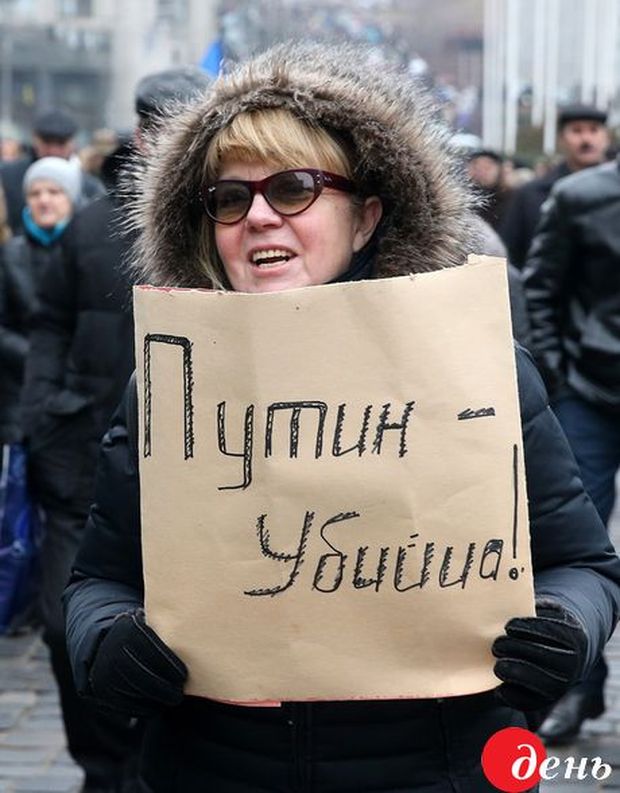 Путин -
Убийца!
день